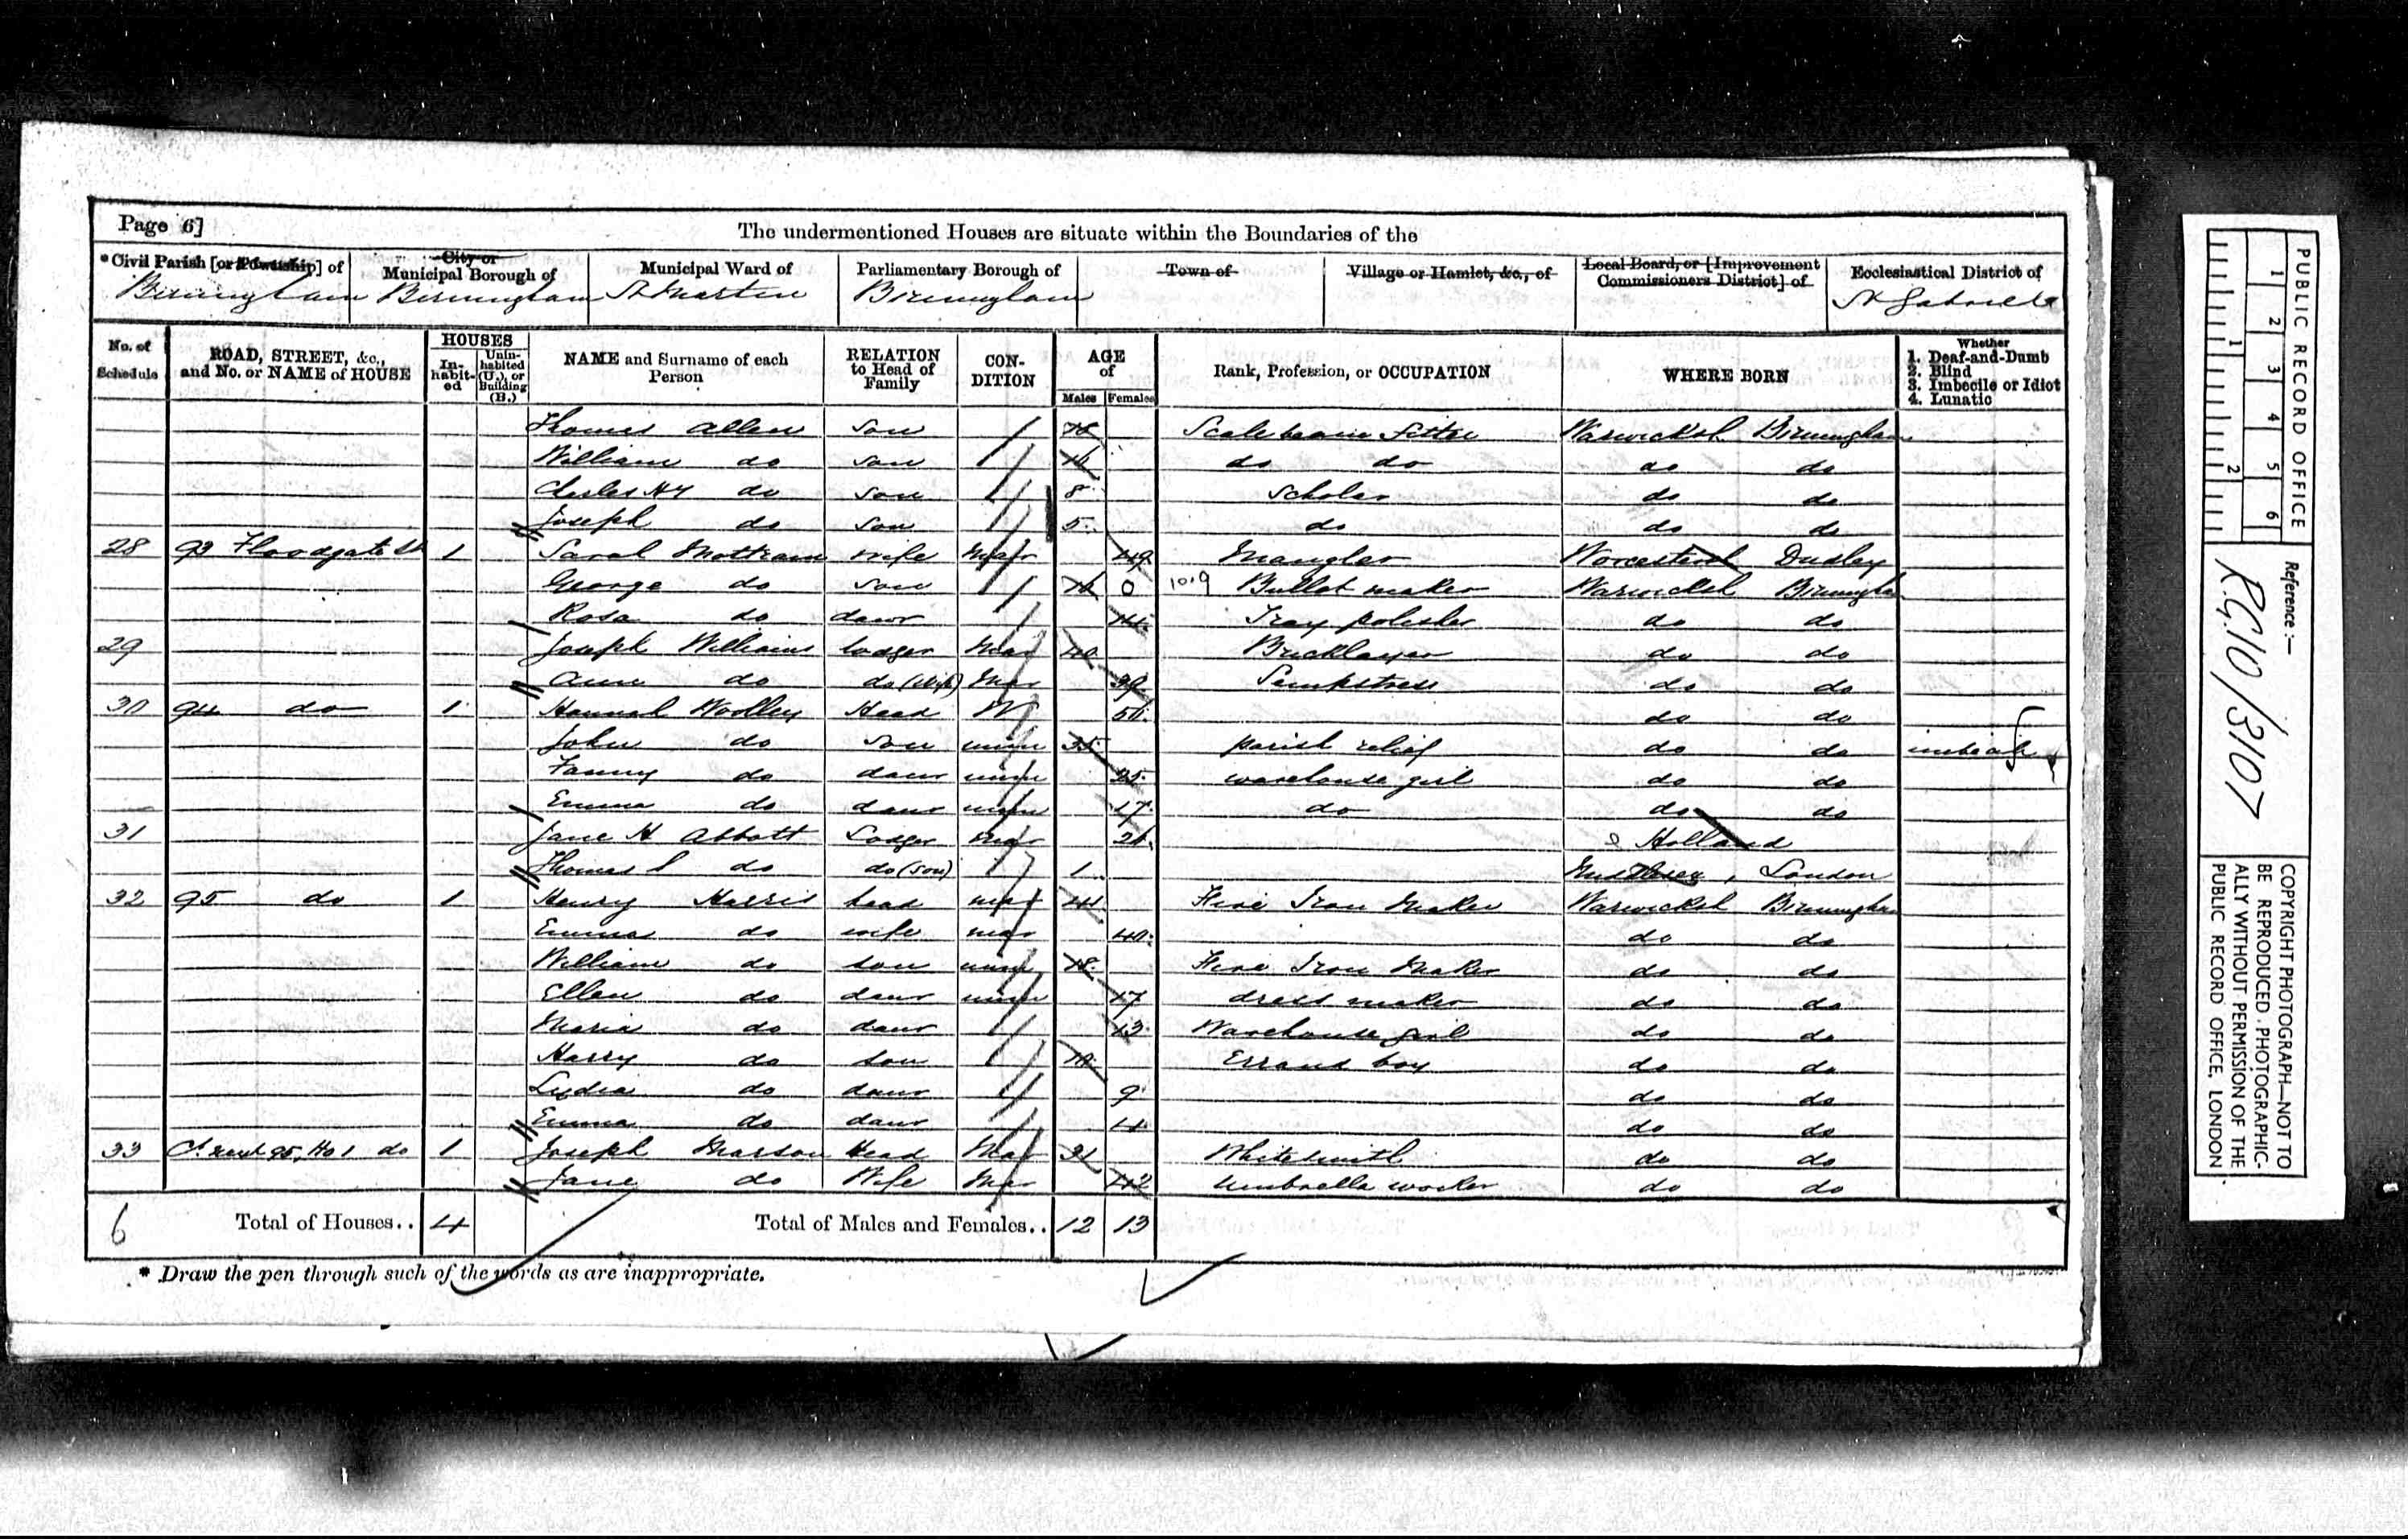 Page 6]
The undermentioned Houses are situate within the Boundaries of the
*Civil Parish [or Township] of
City or Municipal Borough of
Municipal Ward of
Parliamentary Borough of
Town of
Village or Hamlet, &c., of
Local Board, or [Improvement Commissioners District] of
Ecclesiastical District of
Birmingham Birmingham St Martin Birmingham St Gabriels
No. of Schedule
ROAD, STREET, &c., and No. or NAME of HOUSE
HOUSES
Inhabited
Uninhabited (U.), or Building (B.)
NAME and Surname of each Person
RELATION to Head of Family
CONDITION
AGE of
Males Females
Rank, Profession, or OCCUPATION
WHERE BORN
Whether
1. Deaf-and-Dumb
2. Blind
3. Imbecile or Idiot
4. Lunatic
Thomas Allen son 18 Scale beam Fitter Warwicksh Birmingham
William do son 16 do do do do
Charles Hy do son 8 Scholar do do
Joseph do son 5 do do do
28 93 Floodgate St 1 Sarah Mottram wife Mar 49 Mangler Worcestersh Dudley
George do son 16 0 10.9 Bullet maker Warwicksh Birmingham
Rosa do daur 14 Tray polisher do do
29 Joseph Williams lodger Mar 40 Bricklayer do do
Ann do do (Wife) Mar 39 Sempstress do do
30 94 do 1 Hannah Woolley Head W 50 do do
John do son unm 35 parish relief do do imbecile
Fanny do daur unm 25 warehouse girl do do
Emma do daur unm 17 do do do
31 Jane H Abbott Lodger Mar 21 Holland
Thomas do do (son) 1 Middlesex, London
32 95 do 1 Henry Harris head mar 41 Fire Iron Maker Warwicksh Birmingham
Emma do wife mar 40 do do
William do son unm 18 Fire Iron Maker do do
Ellen do daur unm 17 dress maker do do
Maria do daur 13 Warehouse girl do do
Harry do son 10 Errand boy do do
Lydia do daur 9 do do
Emma do daur 4 do do
33 Ct next 95, Ho 1 do 1 Joseph Marson Head Mar 31 Whitesmith do do
Jane do Wife Mar 42 Umbrella worker do do
6 Total of Houses.. 4 Total of Males and Females.. 12 13
* Draw the pen through such of the words as are inappropriate.
PUBLIC RECORD OFFICE
1 2 3 4 5 6
1 2
Reference :—
R.G. 10/3107
COPYRIGHT PHOTOGRAPH—NOT TO
BE REPRODUCED PHOTOGRAPHIC-
ALLY WITHOUT PERMISSION OF THE
PUBLIC RECORD OFFICE, LONDON